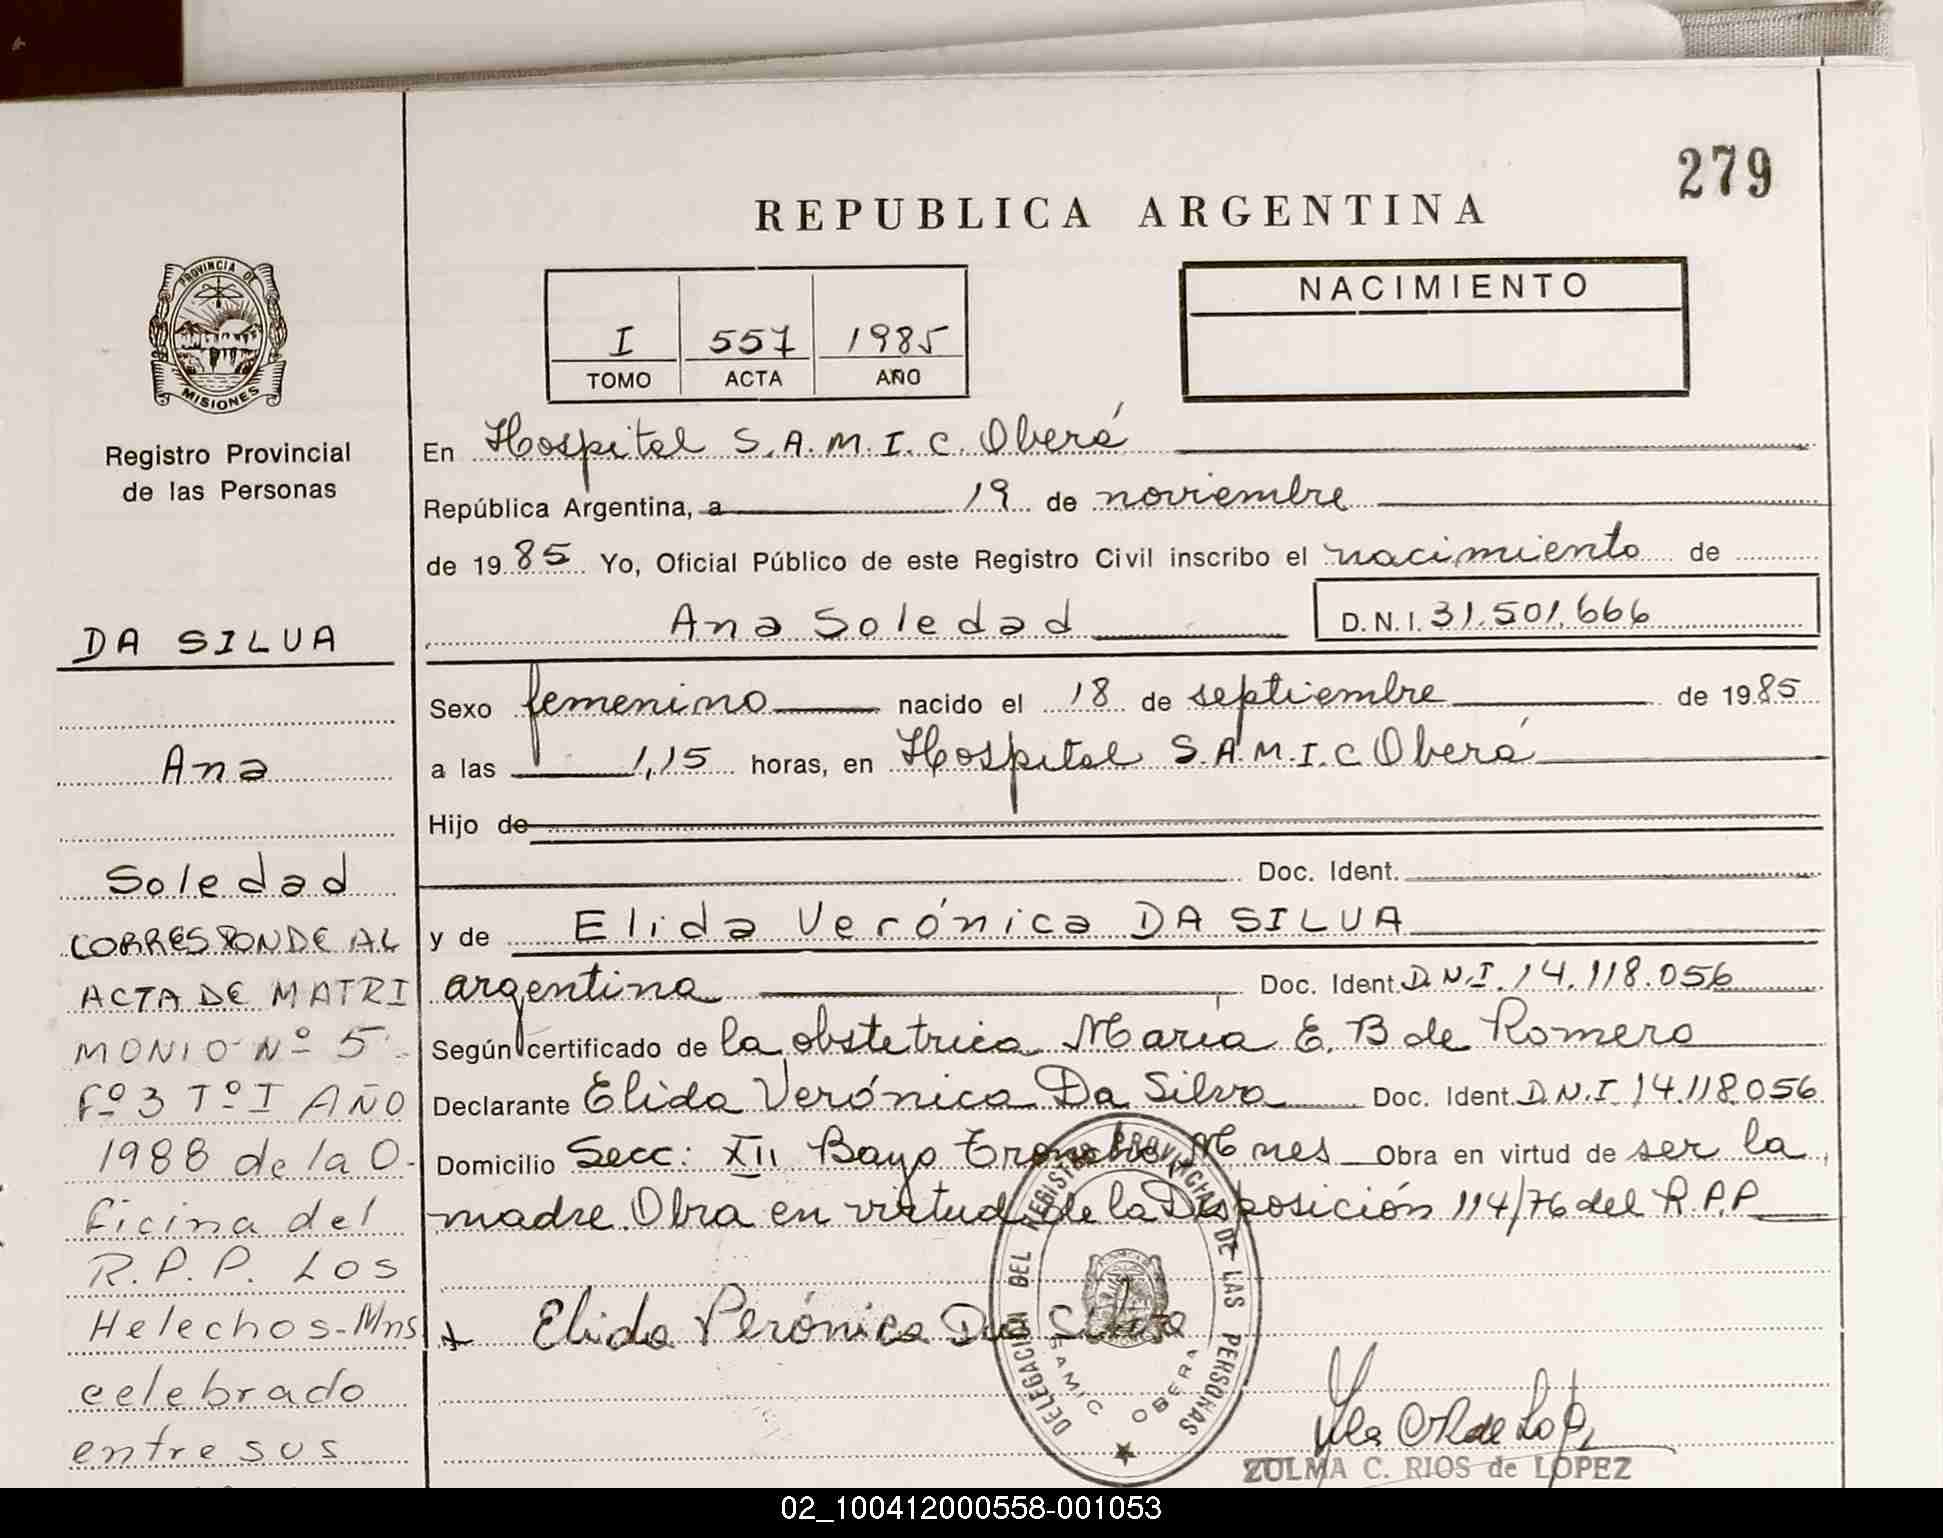 279
REPUBLICA ARGENTINA
PROVINCIA DE
MISIONES
Registro Provincial
de las Personas
I 557 1985
TOMO ACTA AÑO
NACIMIENTO
En Hospital S.A.M.I.C. Oberá
República Argentina, a 19 de noviembre
de 1985 Yo, Oficial Público de este Registro Civil inscribo el nacimiento de
Ana Soledad D.N.I. 31.501.666
Sexo femenino nacido el 18 de septiembre de 1985
a las 1,15 horas, en Hospital S.A.M.I.C Oberá
Hijo de
Doc. Ident.
y de Elida Verónica DA SILVA
argentina Doc. Ident. D.N.I. 14.118.056
Según certificado de la obstetrica María E. B de Romero
Declarante Elida Verónica Da Silva Doc. Ident. D.N.I. 14.118.056
Domicilio Secc: XII Bayo Mnes Obra en virtud de ser la
madre. Obra en virtud de la Disposición 114/76 del R.P.P
Elida Verónica Da Silva
DELEGACION DEL REGISTRO PROVINCIAL DE LAS PERSONAS
SAMIC OBERA
ZULMA C. RIOS de LOPEZ
DA SILVA
Ana
Soledad
CORRESPONDE AL
ACTA DE MATRI
MONIO Nº 5
Fº 3 Tº I AÑO
1988 de la O-
ficina del
R.P.P. Los
Helechos-Mns
celebrado
entre sus
02_100412000558-001053